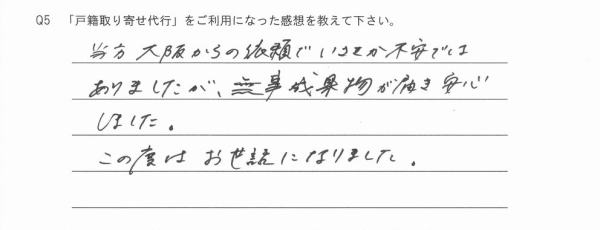 Q5 「戸籍取り寄せ代行」をご利用になった感想を教えて下さい。
当方 大阪からの依頼でいささか不安では
ありましたが、無事成果物が届き安心
しました。
この度は お世話になりました。